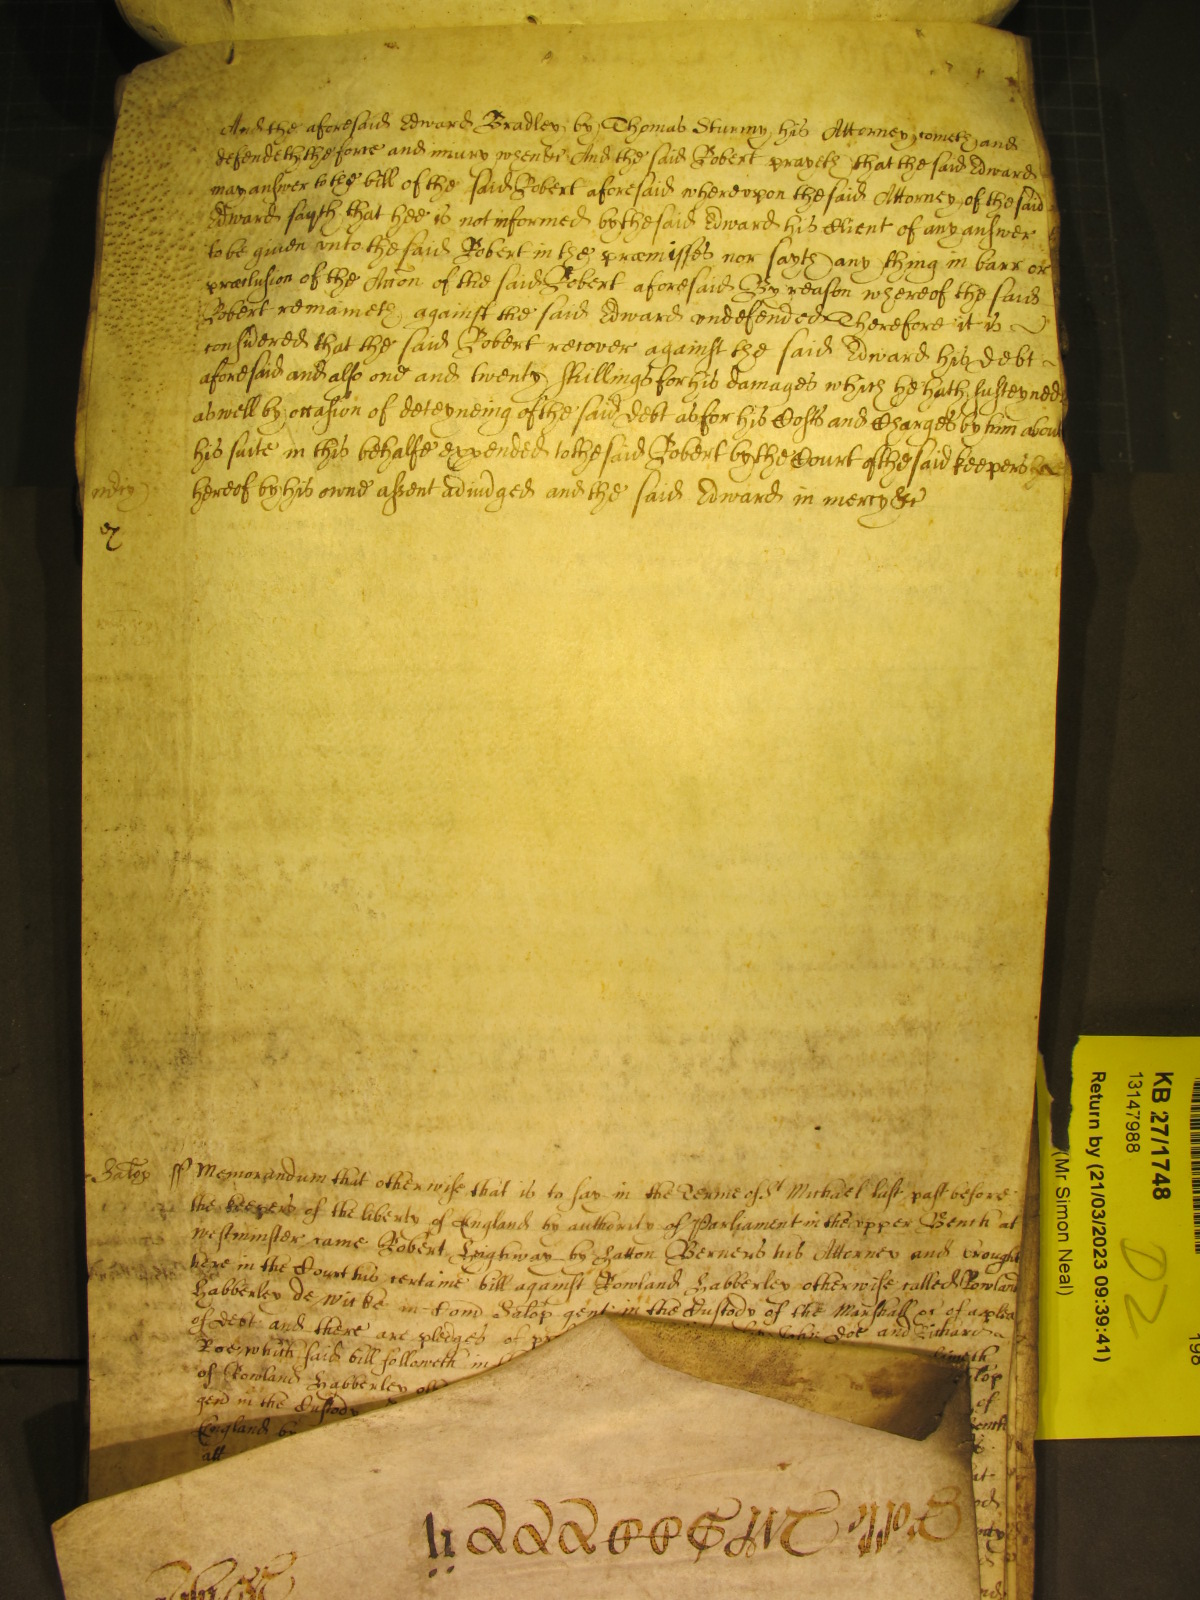 And the aforesaid Edward Bradley by Thomas Sturmy his Attorney cometh and
defendeth the force and iniury whene &c And the said Robert prayeth that the said Edward
may answer to the bill of the said Robert aforesaid wherevpon the said Attorney of the said
Edward sayth that hee is not informed by the said Edward his Client of any answer
to be giuen vnto the said Robert in the præmisses nor sayth any thing in barr or
præclusion of the Accon of the said Robert aforesaid By reason whereof the said
Robert remaineth against the said Edward vndefended Therefore it is
considered that the said Robert recover against the said Edward his debt
aforesaid and also one and twenty shillings for his damages which he hath susteyned
aswell by occasion of deteyneing of the said debt as for his Costs and Charges by him about
his suite in this behalfe expended to the said Robert by the Court of the said keepers
hereof by his owne assent adiudged and the said Edward in mercy &c
Salop ss Memorandum that otherwise that is to say in the Terme of St Michael last past before
the keepers of the liberty of England by authority of Parliament in the vpper Bench at
westminster came Robert Leighway by Hatton Berners his Attorney and brought
here in the Court his certaine bill against Rowland Habberley otherwise called Rowland
Habberley de Wicke in Com Salop gent in the Custody of the Marshall &c of a plea
of debt and there are pledges of John Doe and Richard
Roe which said bill followeth in
of Rowland Habberley
gent in the Custody
England by
all
KB 27/1748
13147988
Return by (21/03/2023 09:39:41)
(Mr Simon Neal)
D2
198